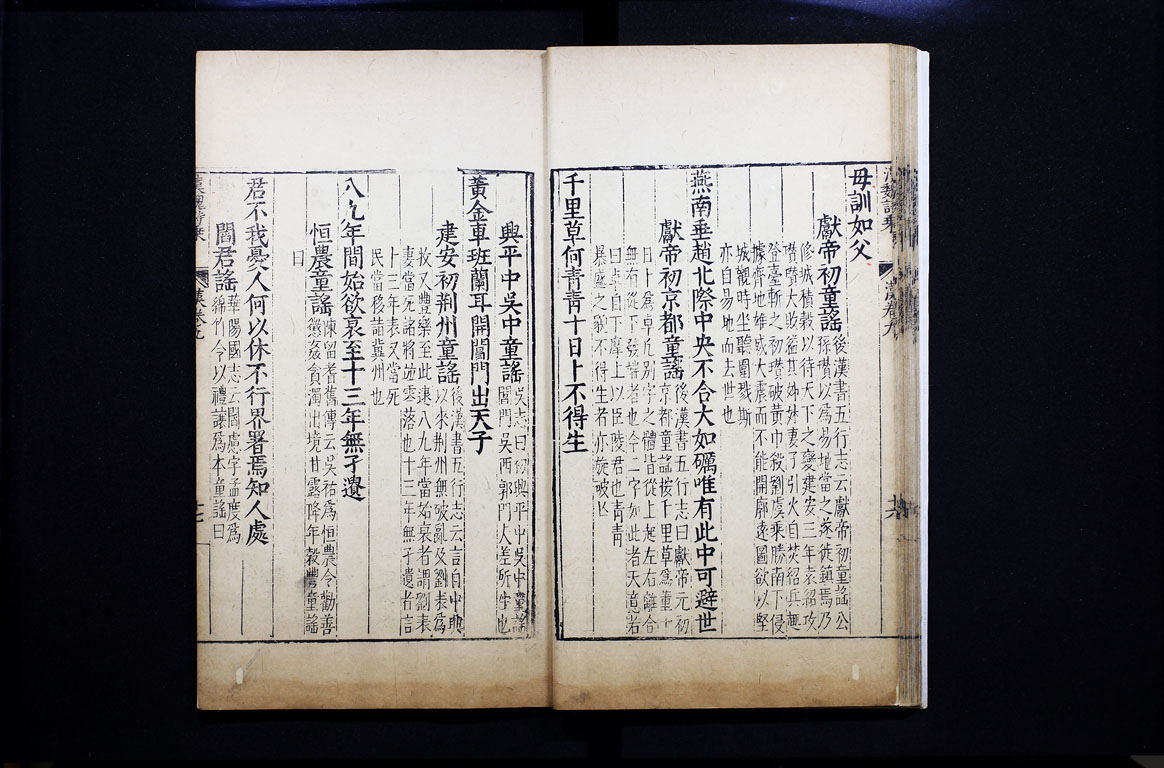 漢魏詩乘 漢卷九 十六
毋訓如父
獻帝初童謠
後漢書五行志云獻帝初童謠公
孫瓚以為易地當之遂徙鎮焉乃
修城積穀以待天下之變建安三年袁紹攻
瓚瓚大敗縊其姊妹妻子引火自焚紹兵趣
登臺斬之初瓚破黃巾殺劉虞乘勝南下侵
據齊地雄威大震而不能開廓遠圖欲以堅
城觀時坐聽圍戮斯
亦自易地而去世也
燕南垂趙北際中央不合大如礪唯有此中可避世
獻帝初京都童謠
後漢書五行志曰獻帝元初
京都童謠按千里草為董十
日卜為卓凡別字之體皆從上起左右離合
無有從下發端者也今二字如此者天意若
曰卓自下摩上以臣陵君也青青
暴盛之貌不得生者亦旋破亡
千里草何青青十日卜不得生
興平中吳中童謠
吳志曰初興平中吳中童謠
閶門吳西郭門夫差所作也
黃金車班蘭耳開閶門出天子
建安初荊州童謠
後漢書五行志云言自中興
以來荊州無破亂及劉表為
牧又豐樂至此逮八九年當始衰者謂劉表
妻當死諸將並零落也十三年無孑遺者言
十三年表又當死
民當移詣冀州也
八九年間始欲衰至十三年無孑遺
恒農童謠
陳留耆舊傳云吳祐為恒農令勸善
懲姦貪濁出境甘露降年穀豐童謠
曰
君不我憂人何以休不行界署焉知人處
閻君謠
華陽國志云閻憲字孟度為
綿竹令以禮讓為本童謠曰
漢魏詩乘 漢卷九